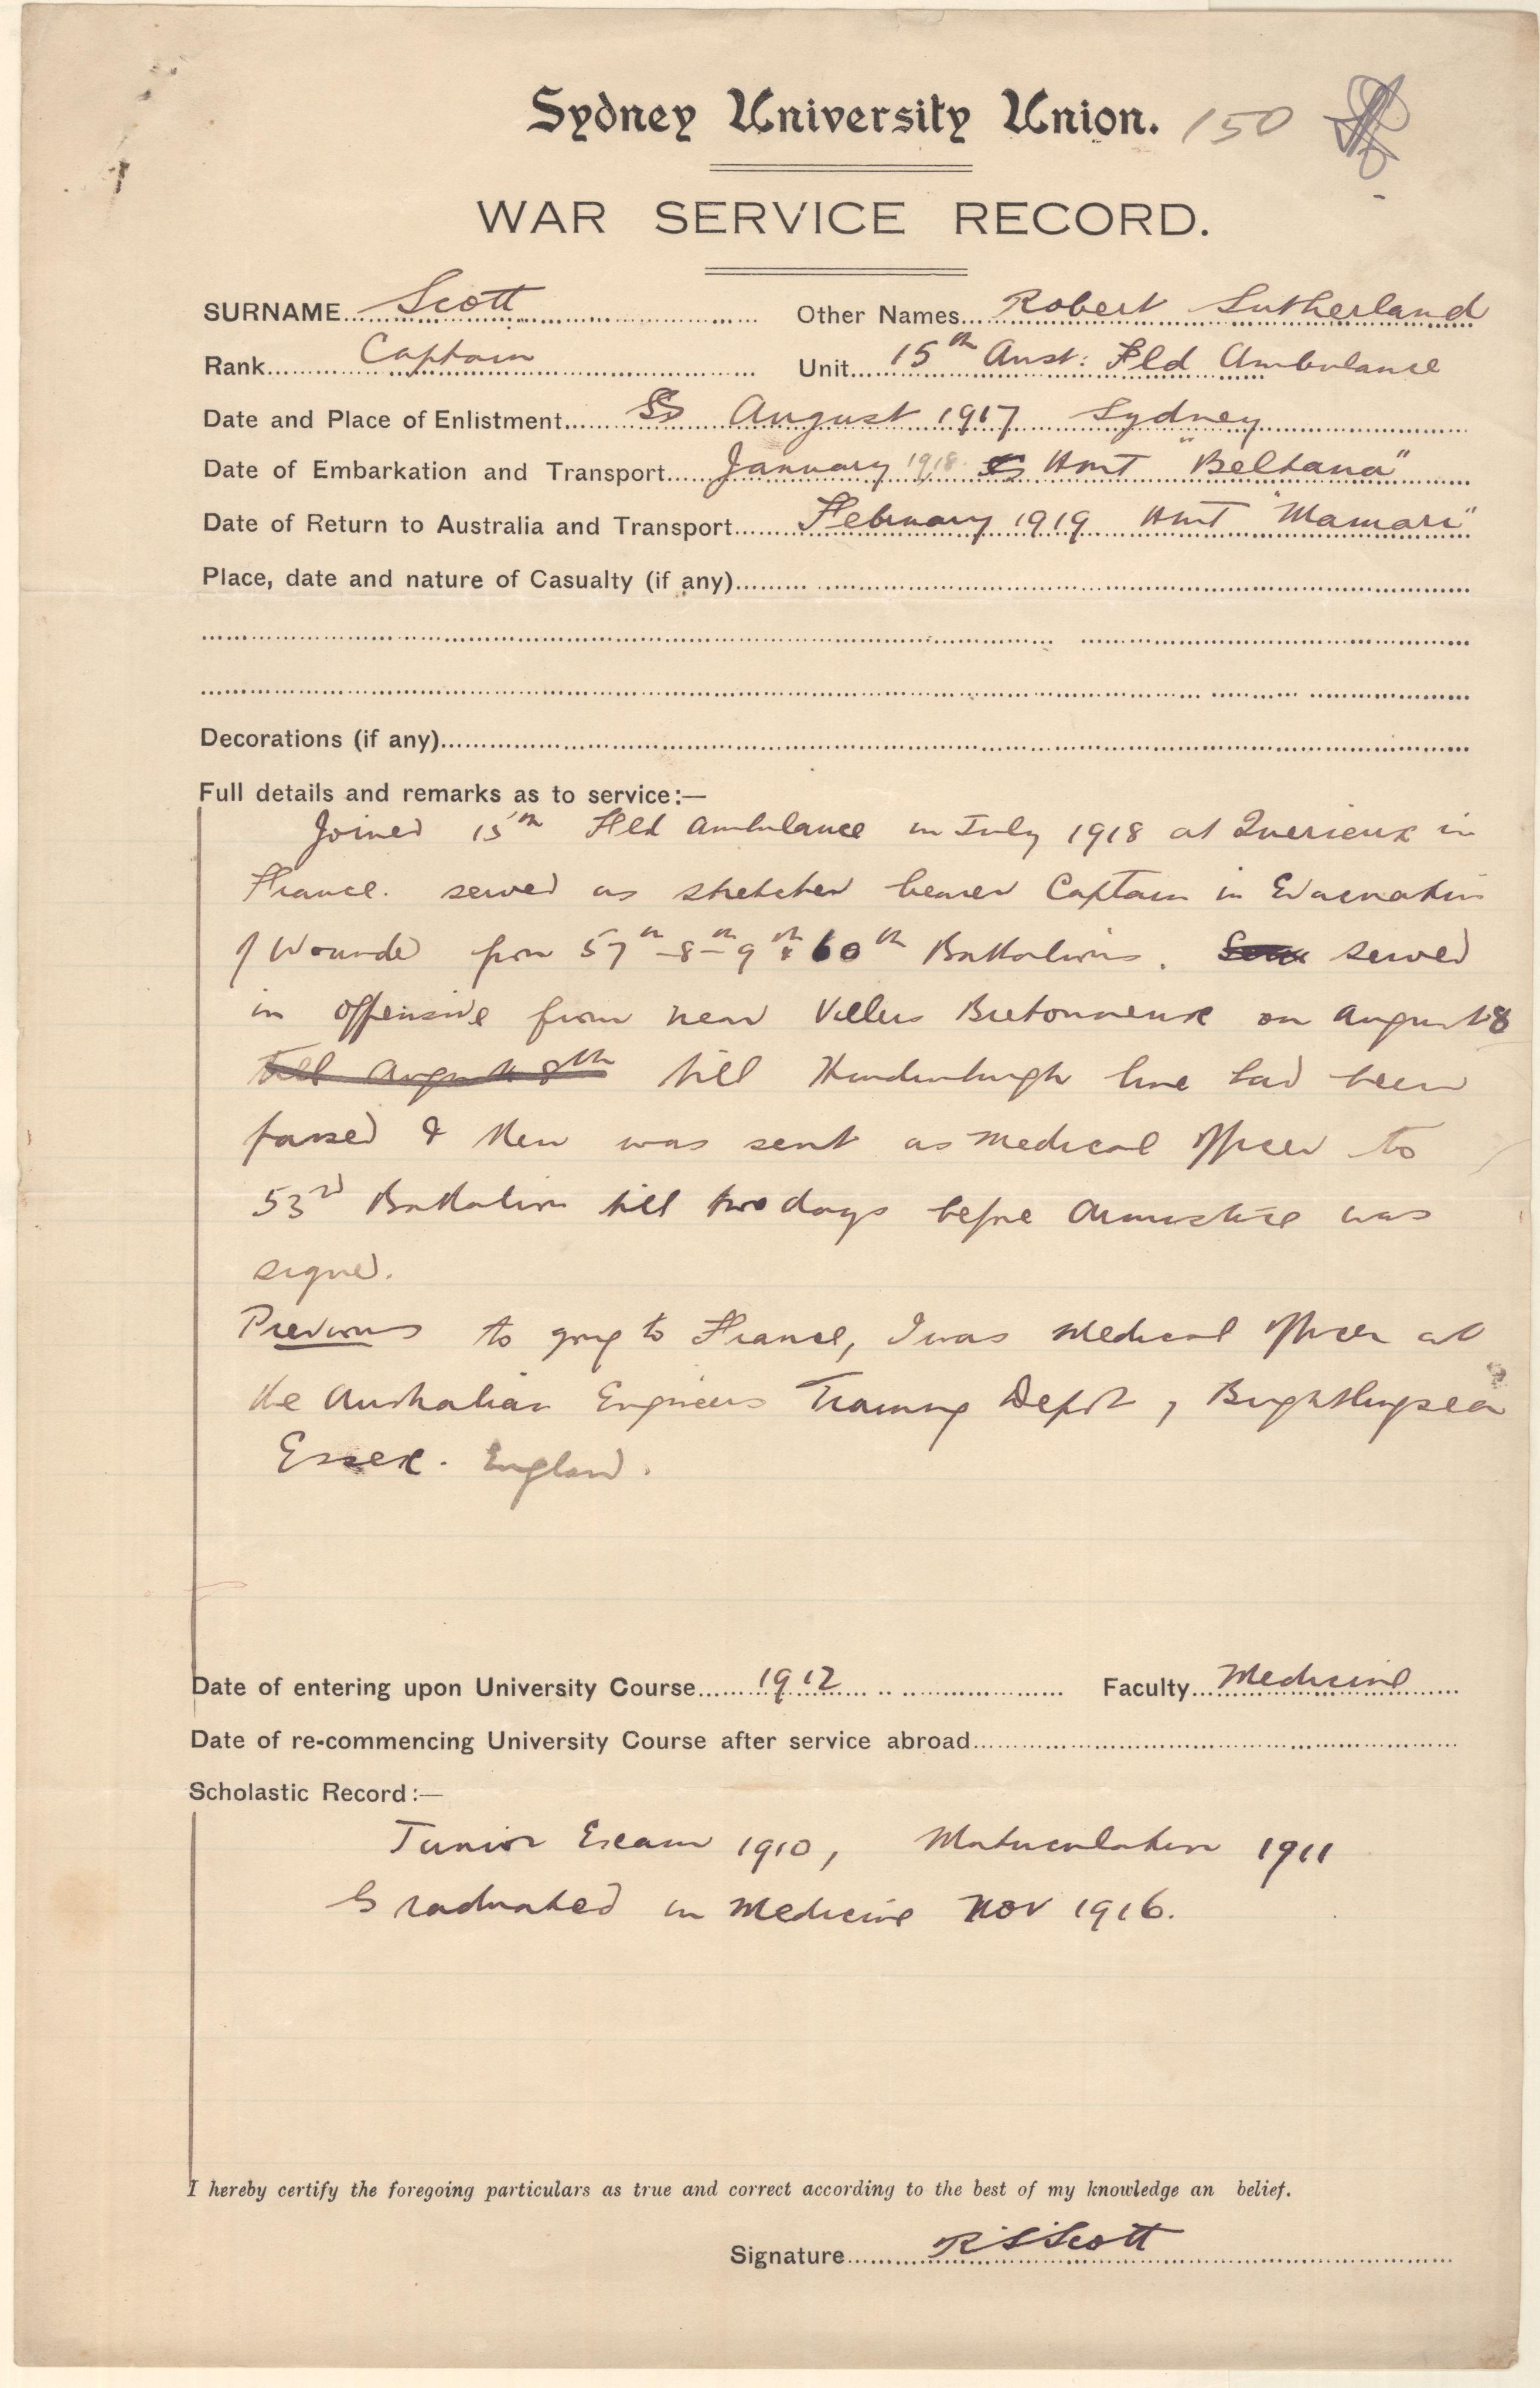 Sydney University Union. 150
WAR SERVICE RECORD.
SURNAME Scott Other Names Robert Sutherland
Rank Captain Unit 15th Aust: Fld Ambulance
Date and Place of Enlistment August 1917 Sydney
Date of Embarkation and Transport January 1918 HMT "Beltana"
Date of Return to Australia and Transport February 1919 HMT "Mamari"
Place, date and nature of Casualty (if any)
Decorations (if any)
Full details and remarks as to service:—
Joined 15th Fld Ambulance in July 1918 at Querieux in
France. served as stretcher bearer Captain in Evacuation
of Wounded from 57th-8th-9th & 60th Battalions. served
in offensive from near Villers Bretonneux on August 8
till August 8th till Hindenburgh line had been
passed & then was sent as medical officer to
53rd Battalion till two days before Armistice was
signed.
Previous to going to France, I was medical officer at
the Australian Engineers Training Depot, Brightlingsea
Essex. England.
Date of entering upon University Course 1912 Faculty Medicine
Date of re-commencing University Course after service abroad
Scholastic Record:—
Junior Exam 1910, Matriculation 1911
Graduated in Medicine Nov 1916.
I hereby certify the foregoing particulars as true and correct according to the best of my knowledge an belief.
Signature R S Scott